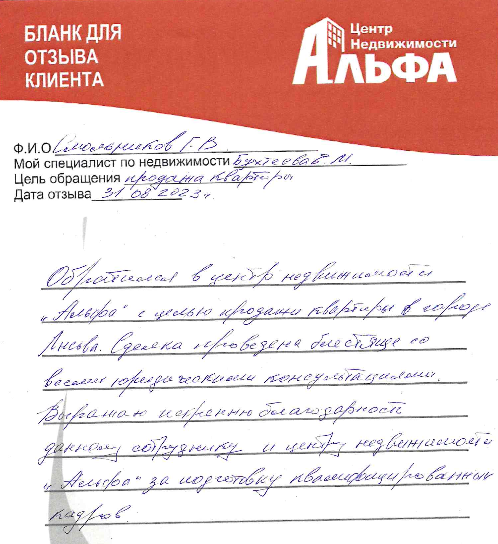 БЛАНК ДЛЯ
ОТЗЫВА
КЛИЕНТА
Центр
Недвижимости
АЛЬФА
Ф.И.О Смольников Г. В.
Мой специалист по недвижимости
Цель обращения продажа квартиры
Дата отзыва 31 08 2023 г.
Обратился в центр недвижимости
"Альфа" с целью продажи квартиры в городе
Лысьва. Сделка проведена блестяще со
всеми юридическими консультациями.
Выражаю искренню благодарность
данному сотруднику и центру недвижимости
"Альфа" за подготовку квалифицированных
кадров.